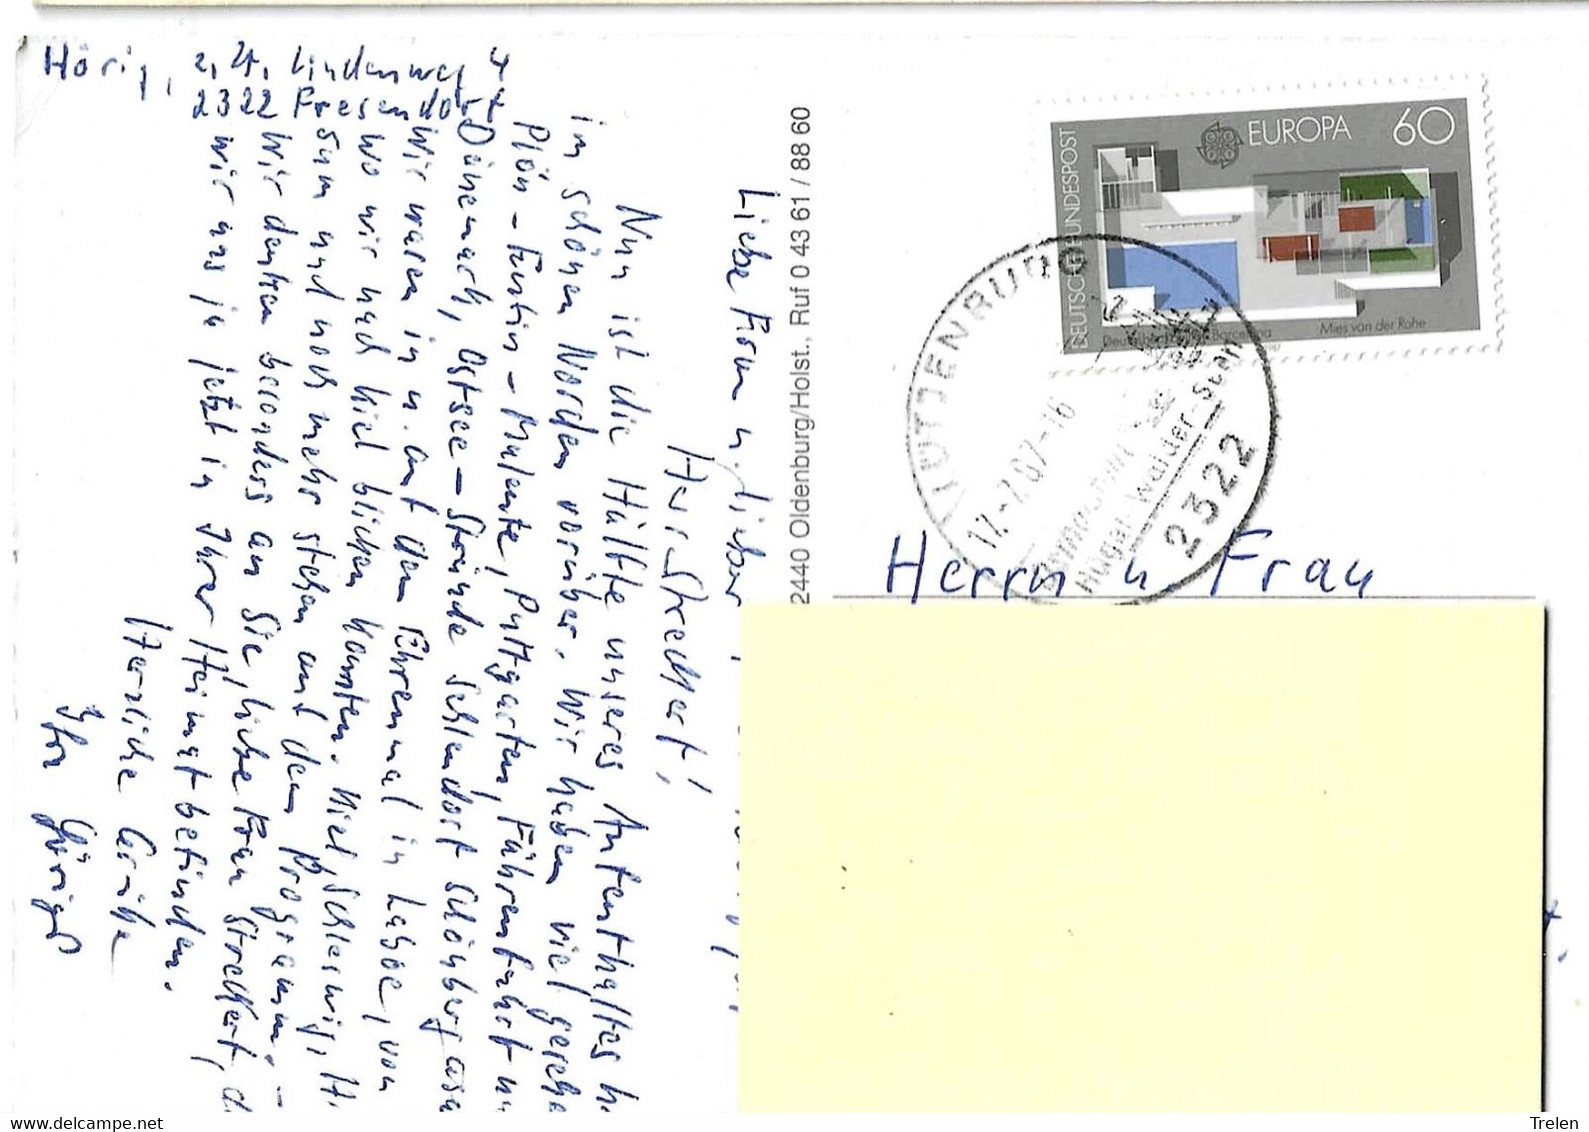 Hörig, z. Zt. Lindenweg 4
2322 Fresendorf
Liebe Frau u. lieber
Herr Streckert!
Nun ist die Hälfte unseres Aufenthaltes h
im schönen Norden vorüber. Wir haben viel gesehe
Plön – Eutin – Malente, Puttgarten, Fährenfahrt n
Dänemark, Ostsee – Strände Schlendorf Schönberg
Wir waren in u. auf dem Ehrenmal in Laboe, von
wo wir nach Kiel blicken konnten. Kiel, Schleswig, H
sum und noch mehr stehen auf dem Programm. –
Wir denken besonders an Sie, liebe Frau Streckert, d
wir uns ja jetzt in Ihrer Heimat befinden.
Herzliche Grüße
Ihre Hörigs
2440 Oldenburg/Holst., Ruf 0 43 61 / 88 60
DEUTSCHE BUNDESPOST
EUROPA 60
Mies van der Rohe
LÜTJENBURG
2322
Herrn u Frau
delcampe.net
Trelen